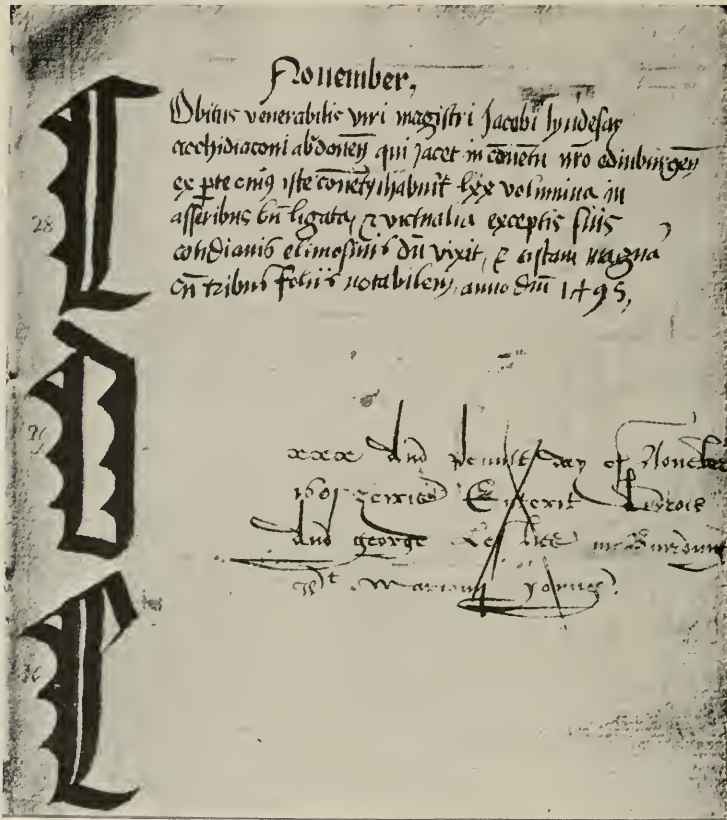 Nouember,
C
Obitus venerabilis viri magistri Jacobi lyndesay
archidiaconi abdoneñ qui jacet in cōuētu nr̄o edinburgeñ
ex pte cuiꝯ iste conuētꝯ habuit lxx volumina in
28
asseribus bñ ligata, ⁊ victualia exceptis suis
cotidianis elimosinis dū vixit, ⁊ cistam magnā
cū tribus foliis notabilem, anno dñi 1495,
D
29
xxx And penult day of Nouēber
1601 zeiris
And george
wt Marioun
E
30